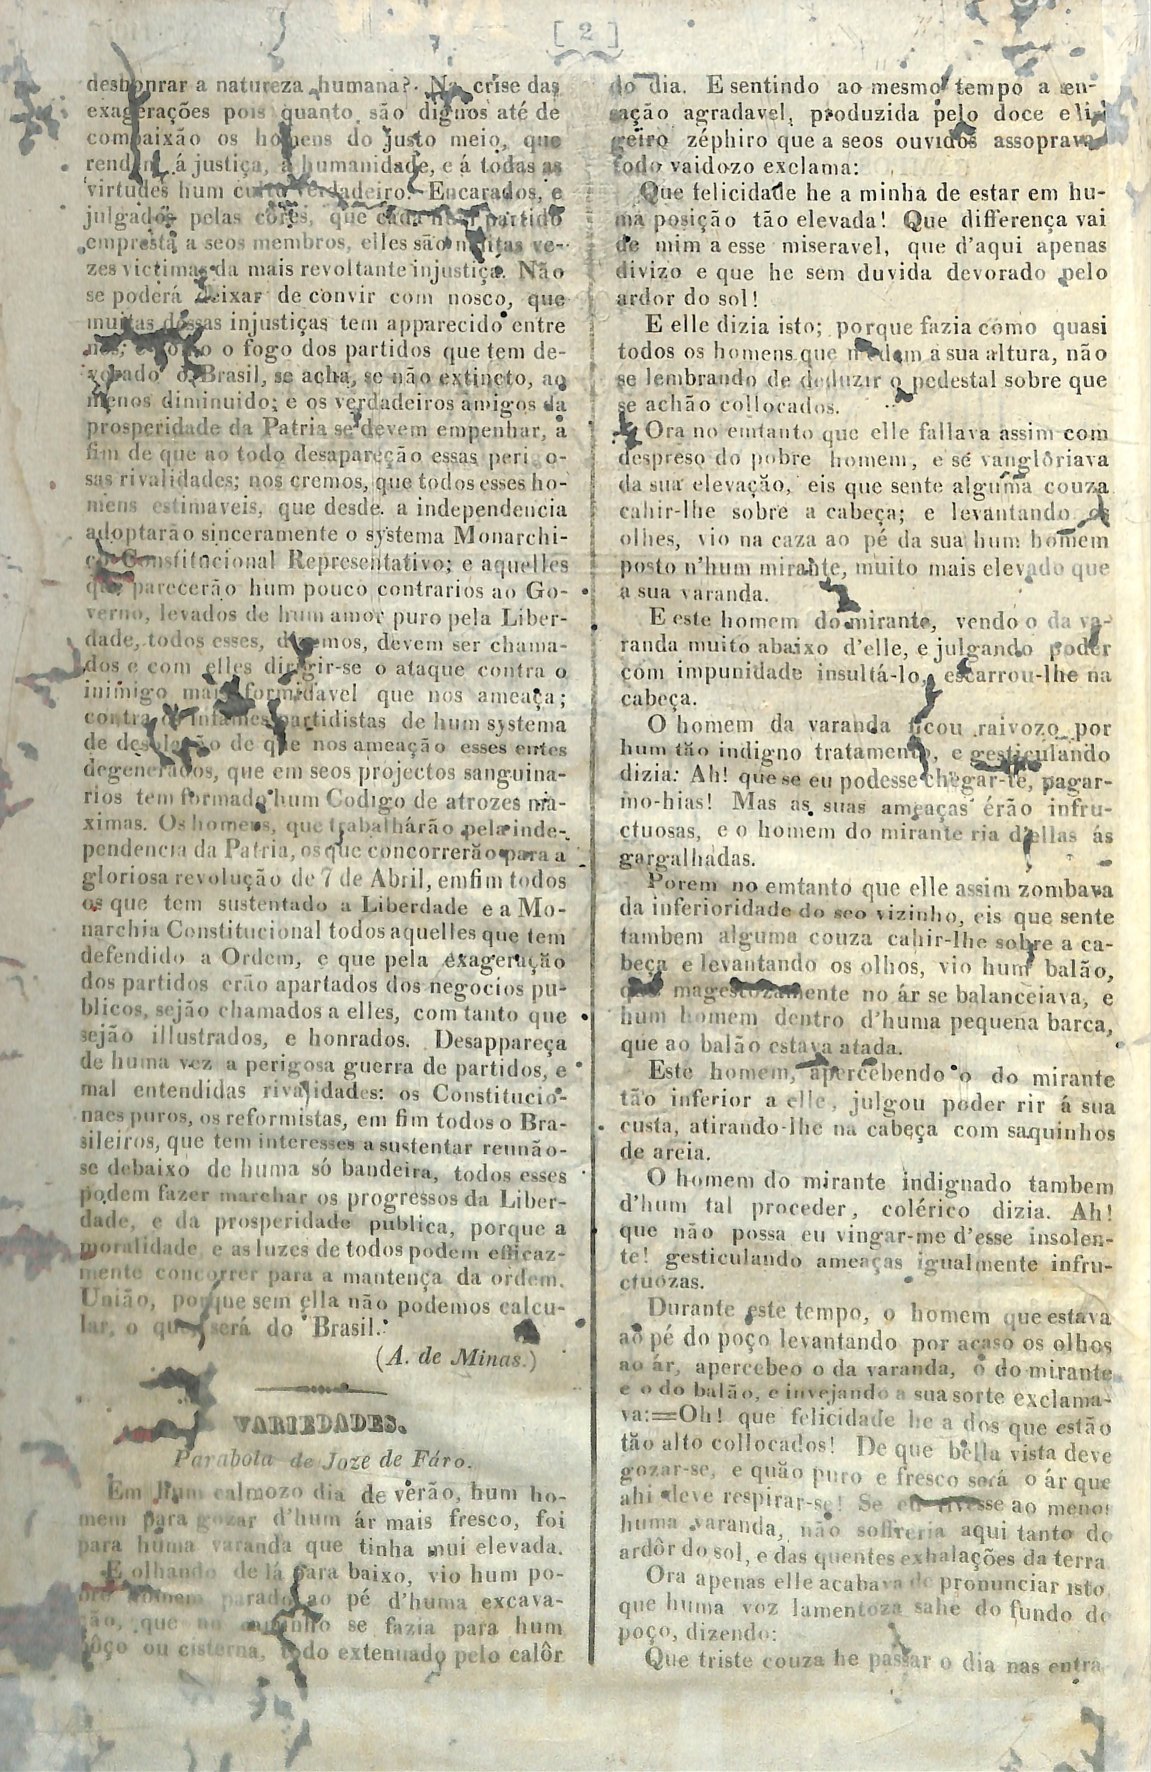 [ 2 ]
deshonrar a natureza humana? Na crise das
exagerações pois quanto são dignos até de
compaixão os homens do justo meio, que
rendem á justiça, á humanidade, e á todas as
virtudes hum culto verdadeiro. Encarados, e
julgados pelas côres, que cada hum partido
empresta a seos membros, elles são muitas ve-
zes victimas da mais revoltante injustiça. Não
se poderá deixar de convir com nosco, que
muitas dessas injustiças tem apparecido entre
nós, e como o fogo dos partidos que tem de-
vorado o Brasil, se acha, se não extincto, ao
menos diminuido; e os verdadeiros amigos da
prosperidade da Patria se devem empenhar, a
fim de que ao todo desapareção essas perigo-
sas rivalidades; nos cremos, que todos esses ho-
mens estimaveis, que desde a independencia
adoptarão sinceramente o systema Monarchi-
co Constitucional Representativo; e aquelles
que parecerão hum pouco contrarios ao Go-
verno, levados de hum amor puro pela Liber-
dade, todos esses, dizemos, devem ser chama-
dos e com elles dirigir-se o ataque contra o
inimigo mais formidavel que nos ameaça;
contra os infames partidistas de hum systema
de desolação de que nos ameação esses entes
degenerados, que em seos projectos sanguina-
rios tem formado hum Codigo de atrozes ma-
ximas. Os homens, que trabalhárão pela inde-
pendencia da Patria, os que concorrerão para a
gloriosa revolução de 7 de Abril, emfim todos
os que tem sustentado a Liberdade e a Mo-
narchia Constitucional todos aquelles que tem
defendido a Ordem, e que pela exageração
dos partidos erão apartados dos negocios pu-
blicos, sejão chamados a elles, com tanto que
sejão illustrados, e honrados. Desappareça
de huma vez a perigosa guerra de partidos, e
mal entendidas rivalidades: os Constitucio-
naes puros, os reformistas, em fim todos o Bra-
sileiros, que tem interesses a sustentar reunão-
se debaixo de huma só bandeira, todos esses
podem fazer marchar os progressos da Liber-
dade, e da prosperidade publica, porque a
moralidade e as luzes de todos podem efficaz-
mente concorrer para a mantença da ordem.
União, porque sem ella não podemos calcu-
lar, o que será do Brasil.
(A. de Minas.)
VARIEDADES.
Parabola de Joze de Fáro.
Em hum calmozo dia de verão, hum ho-
mem para gozar d'hum ár mais fresco, foi
para huma varanda que tinha mui elevada.
E olhando de lá para baixo, vio hum po-
bre homem parado ao pé d'huma excava-
ção, que no caminho se fazia para hum
pôço ou cisterna, todo extenuado pelo calôr
do dia. E sentindo ao mesmo tempo a sen-
sação agradavel, produzida pelo doce e li-
geiro zéphiro que a seos ouvidos assoprava,
todo vaidozo exclama:
Que felicidade he a minha de estar em hu-
ma posição tão elevada! Que differença vai
de mim a esse miseravel, que d'aqui apenas
divizo e que he sem duvida devorado pelo
ardor do sol!
E elle dizia isto; porque fazia como quasi
todos os homens que medem a sua altura, não
se lembrando de deduzir o pedestal sobre que
se achão collocados.
Ora no emtanto que elle fallava assim com
despreso do pobre homem, e se vanglôriava
da sua elevação, eis que sente alguma couza
cahir-lhe sobre a cabeça; e levantando os
olhes, vio na caza ao pé da sua hum homem
posto n'hum mirante, muito mais elevado que
a sua varanda.
E este homem do mirante, vendo o da va-
randa muito abaixo d'elle, e julgando poder
com impunidade insultá-lo, escarrou-lhe na
cabeça.
O homem da varanda ficou raivozo por
hum tão indigno tratamento, e gesticulando
dizia: Ah! que se eu podesse chegar-te, pagar-
mo-hias! Mas as suas ameaças érão infru-
ctuosas, e o homem do mirante ria d'ellas ás
gargalhadas.
Porem no emtanto que elle assim zombava
da inferioridade do seo vizinho, eis que sente
tambem alguma couza cahir-lhe sobre a ca-
beça e levantando os olhos, vio hum balão,
que magestozamente no ár se balanceiava, e
hum homem dentro d'huma pequena barca,
que ao balão estava atada.
Este homem, apercebendo o do mirante
tão inferior a elle, julgou poder rir á sua
custa, atirando-lhe na cabeça com saquinhos
de areia.
O homem do mirante indignado tambem
d'hum tal proceder, colérico dizia. Ah!
que não possa eu vingar-me d'esse insolen-
te! gesticulando ameaças igualmente infru-
ctuozas.
Durante este tempo, o homem que estava
ao pé do poço levantando por acaso os olhos
ao ár, apercebeo o da varanda, o do mirante
e o do balão, e invejando a sua sorte exclama-
va:=Oh! que felicidade he a dos que estão
tão alto collocados! De que bella vista deve
gozar-se, e quão puro e fresco será o ár que
ahi deve respirar-se! Se eu tivesse ao menos
huma varanda, não soffreria aqui tanto do
ardôr do sol, e das quentes exhalações da terra
Ora apenas elle acabava de pronunciar isto
que huma voz lamentoza sahe do fundo do
poço, dizendo:
Que triste couza he passar o dia nas entra